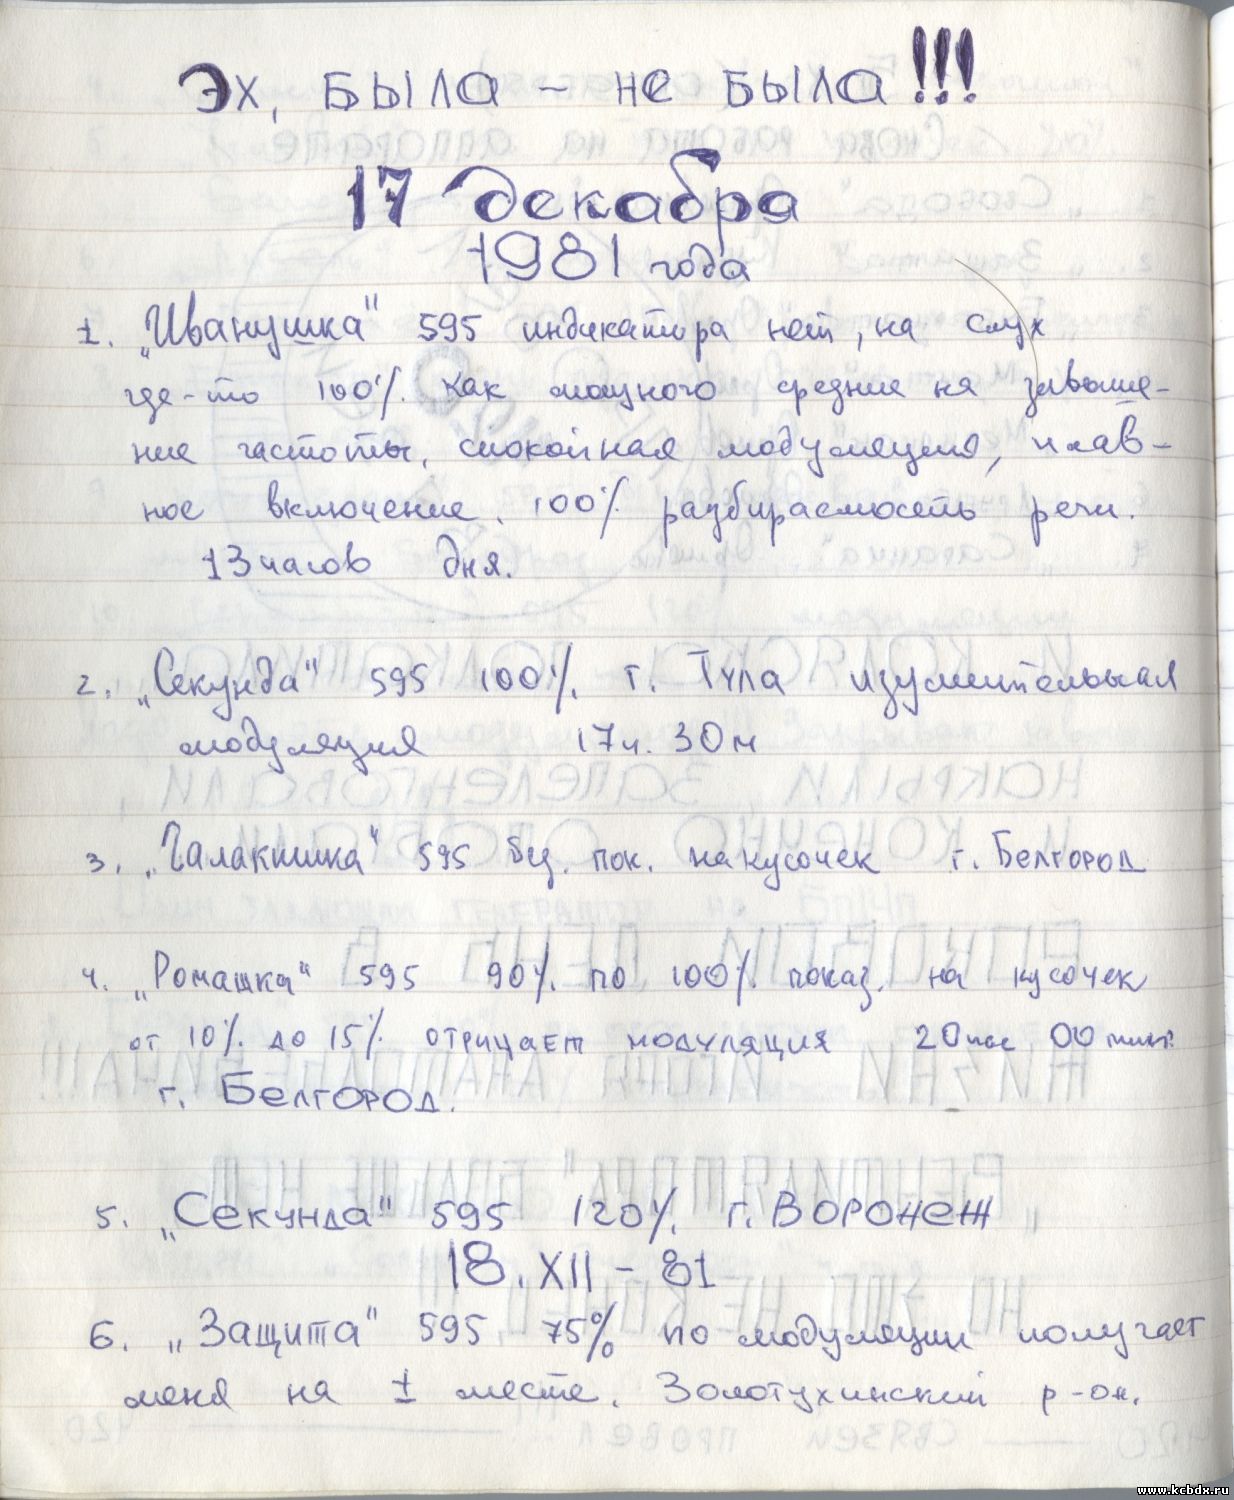 Эх, была - не была!!!
17 декабря
1981 года
1. „Иванушка" 595 индикатора нет, на слух
где-то 100%. Как мощного средние на завыше-
ние частоты, спокойная модуляция, плав-
ное включение. 100% разбираемость речи.
13 часов дня.
2. „Секунда" 595 100%. г. Тула изумительная
модуляция 17ч. 30м
3. „Галактика" 595 без. пок. на кусочек г. Белгород
4. „Ромашка" 595 90% по 100% показ. на кусочек
от 10% до 15% отрицает модуляция 20час 00мин.
г. Белгород.
5. „Секунда" 595 120%. г. Воронеж
18. XII - 81
6. „Защита" 595, 75% по модуляции получает
меня на 1 месте. Золотухинский р-он.
www.kcbdx.ru